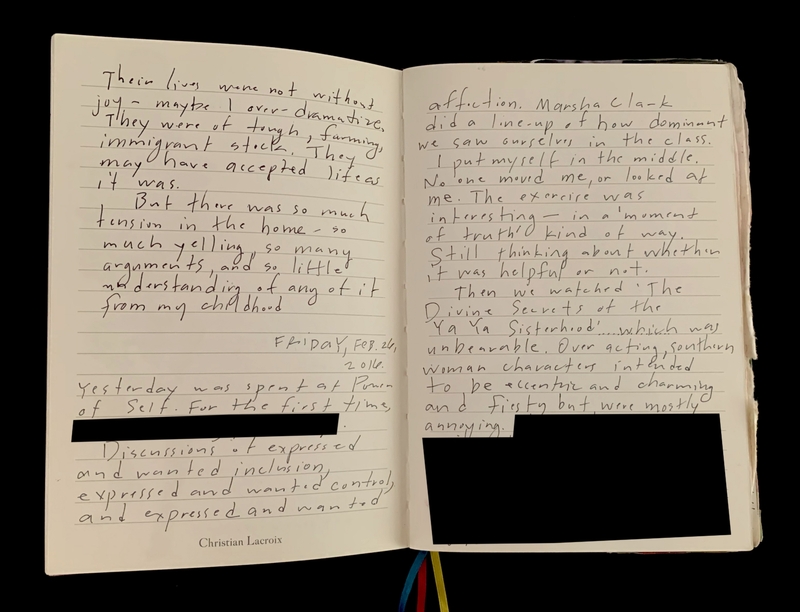 Their lives were not without
joy - maybe I over-dramatize.
They were of tough, farming,
immigrant stock. They
may have accepted life as
it was.
But there was so much
tension in the home - so
much yelling, so many
arguments, and so little
understanding of any of it
from my childhood
FRIDAY, FEB. 26,
2016.
Yesterday was spent at Power
of Self. For the first time,
Discussions of expressed
and wanted inclusion,
expressed and wanted control,
and expressed and wanted
Christian Lacroix
affection. Marsha Clark
did a line-up of how dominant
we saw ourselves in the class.
I put myself in the middle.
No one moved me, or looked at
me. The exercise was
interesting - in a 'moment
of truth' kind of way.
Still thinking about whether
it was helpful or not.
Then we watched 'The
Divine Secrets of the
Ya Ya Sisterhood' which was
unbearable. Over acting, southern
woman characters intended
to be eccentric and charming
and fiesty but were mostly
annoying.